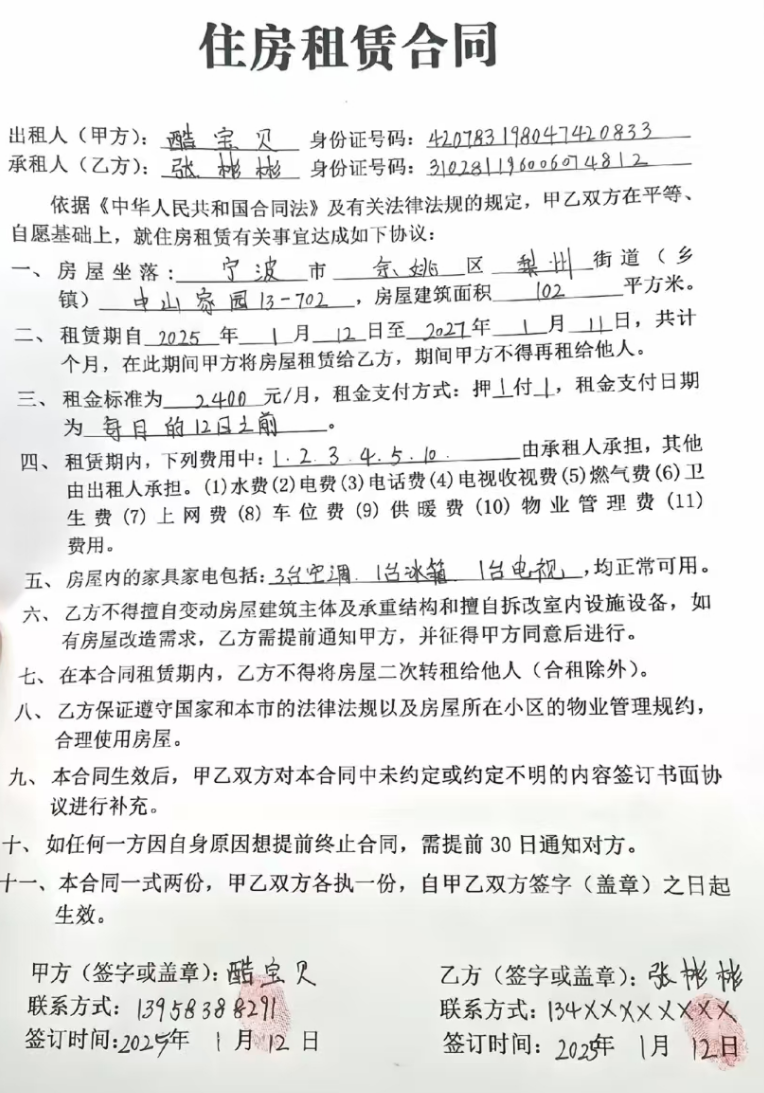 住房租赁合同
出租人（甲方）：酷宝贝 身份证号码：420783198047420833
承租人（乙方）：张彬彬 身份证号码：310281196006074812
依据《中华人民共和国合同法》及有关法律法规的规定，甲乙双方在平等、
自愿基础上，就住房租赁有关事宜达成如下协议：
一、房屋坐落：宁波市余姚区梨州街道（乡
镇）中山家园13-702，房屋建筑面积102平方米。
二、租赁期自2025年1月12日至2027年1月11日，共计
个月，在此期间甲方将房屋租赁给乙方，期间甲方不得再租给他人。
三、租金标准为2400元/月，租金支付方式：押1付1，租金支付日期
为每月的12日之前。
四、租赁期内，下列费用中：1.2.3.4.5.10.由承租人承担，其他
由出租人承担。(1)水费(2)电费(3)电话费(4)电视收视费(5)燃气费(6)卫
生费(7)上网费(8)车位费(9)供暖费(10)物业管理费(11)
费用。
五、房屋内的家具家电包括：3台空调.1台冰箱 1台电视，均正常可用。
六、乙方不得擅自变动房屋建筑主体及承重结构和擅自拆改室内设施设备，如
有房屋改造需求，乙方需提前通知甲方，并征得甲方同意后进行。
七、在本合同租赁期内，乙方不得将房屋二次转租给他人（合租除外）。
八、乙方保证遵守国家和本市的法律法规以及房屋所在小区的物业管理规约，
合理使用房屋。
九、本合同生效后，甲乙双方对本合同中未约定或约定不明的内容签订书面协
议进行补充。
十、如任何一方因自身原因想提前终止合同，需提前30日通知对方。
十一、本合同一式两份，甲乙双方各执一份，自甲乙双方签字（盖章）之日起
生效。
甲方（签字或盖章）：酷宝贝 乙方（签字或盖章）：张彬彬
联系方式：13958388291 联系方式：134XXXXXXXX
签订时间：2025年1月12日 签订时间：2025年1月12日